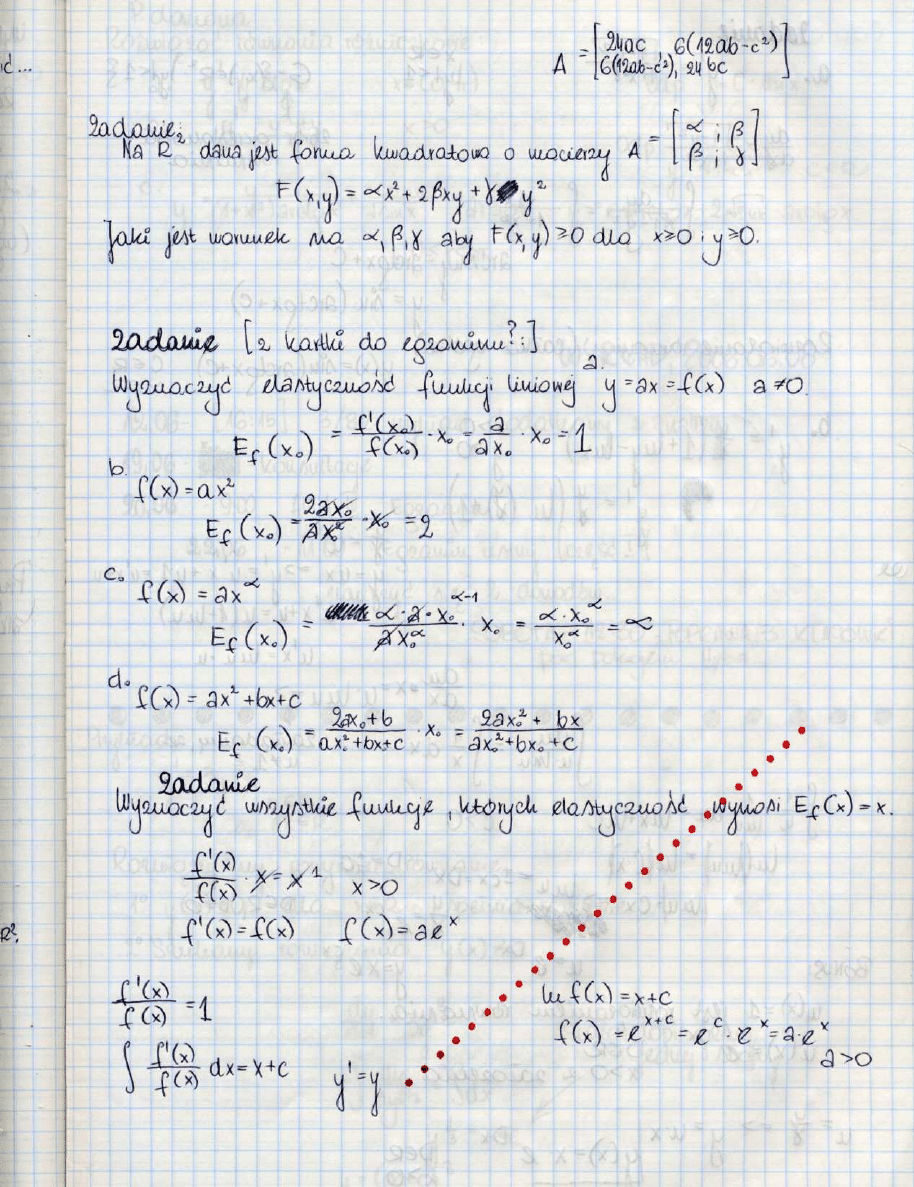 ić...
A = [24ac 6(12ab-c²)
6(12ab-c²), 24bc]
Zadanie:
Na R² dana jest forma kwadratowa o macierzy A = [α ; β
β ; γ]
F(x,y) = αx² + 2βxy + γ y²
Jaki jest warunek na α, β, γ aby F(x,y) ≥ 0 dla x≥0 i y≥0.
Zadanie [z kartki do egzaminu? :]
a.
Wyznaczyć elastyczność funkcji liniowej y = ax = f(x) a ≠ 0.
E_f(x₀) = f'(x₀)/f(x₀) · x₀ = a/ax₀ · x₀ = 1
b.
f(x) = ax²
E_f(x₀) = 2ax₀/ax₀² · x₀ = 2
c.
f(x) = ax^α
E_f(x₀) = α·a·x₀^α-1/ax₀^α · x₀ = α·x₀^α/x₀^α = ∝
d.
f(x) = ax² + bx + c
E_f(x₀) = 2ax₀+b/ax₀²+bx+c · x₀ = 2ax₀² + bx/ax₀²+bx₀+c
Zadanie
Wyznaczyć wszystkie funkcje, których elastyczność wynosi E_f(x) = x.
f'(x)/f(x) · x = x 1 x>0
f'(x) = f(x) f(x) = ae^x
R².
f'(x)/f(x) = 1
∫ f'(x)/f(x) dx = x+c
y' = y
ln f(x) = x+c
f(x) = e^x+c = e^c · e^x = a·e^x
a>0